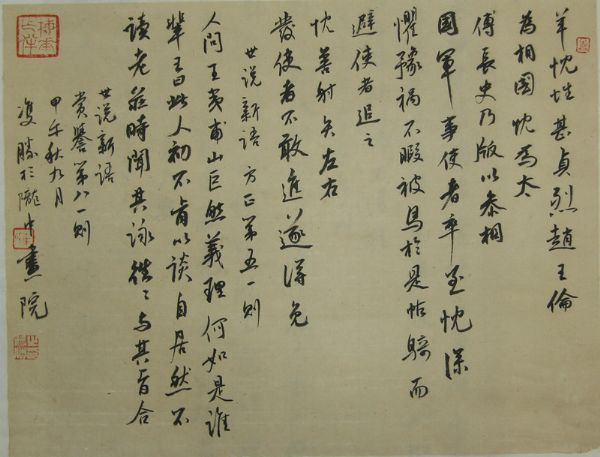 羊忱性甚貞烈趙王倫
為相國忱為太
傅長史乃版以參相
國軍事使者卒至忱深
懼豫禍不暇被馬於是帖騎而
避使者追之
忱善射矢左右
發使者不敢進遂得免
世说新语 方正第五一則
人問王夷甫山巨然義理何如是誰
輩王曰此人初不肯以談自居然不
讀老莊時聞其詠往々与其旨合
世说新語
賞譽第八一則
甲午秋九月
雙勝於隴中畫院